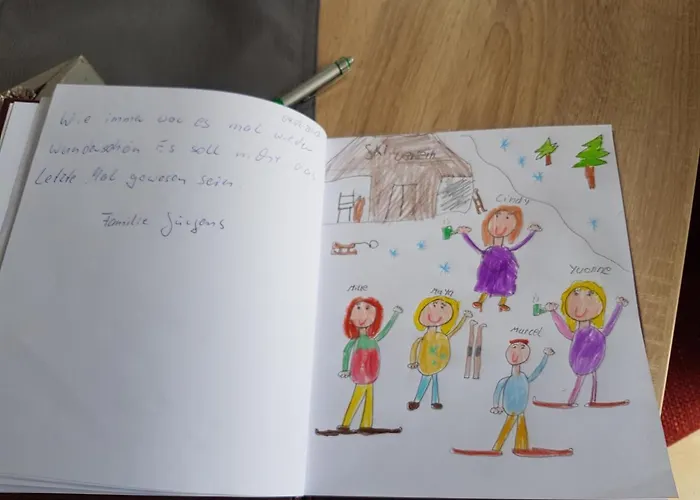 Wie immer war es mal wieder
wunderschön Es soll nicht das
letzte Mal gewesen sein
Familie Jürgens
Ski
Cindy
Yvonne
Maya
Marcel